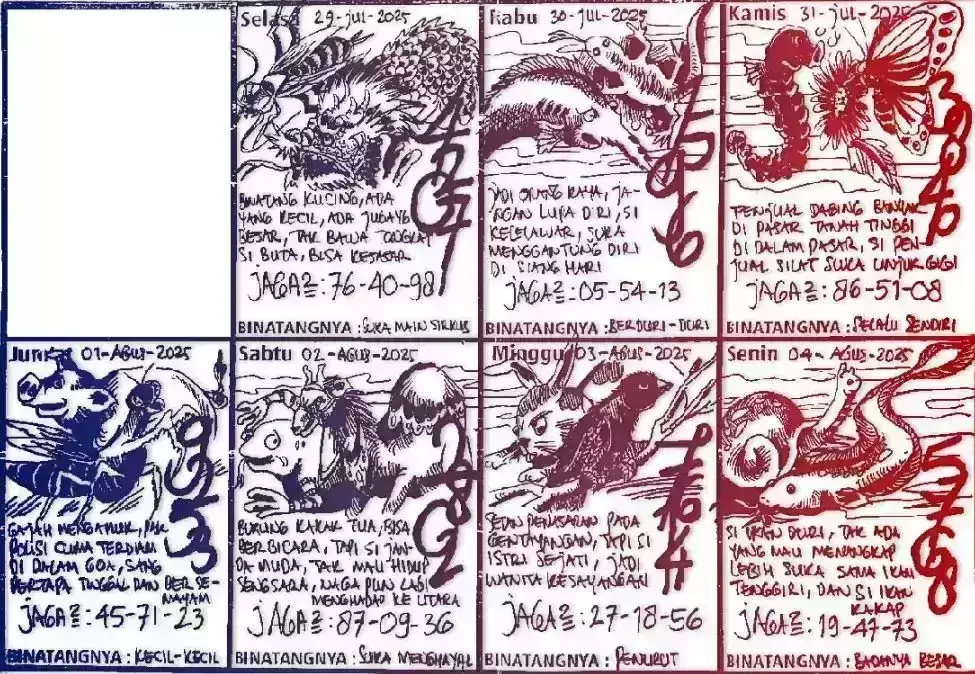 Selasa 29-Jul-2025
BINATANG KUCING, ADA
YANG KECIL, ADA JUGA YG
BESAR, TAK BAWA TONGKAT
SI BUTA, BISA KESASAR
JAGA2 : 76-40-98
BINATANGNYA : SUKA MAIN SIRKUS
Rabu 30-Jul-2025
JADI ORANG KAYA, JA-
NGAN LUPA DIRI, SI
KELELAWAR, SUKA
MENGGANTUNG DIRI
DI SIANG HARI
JAGA2 : 05-54-13
BINATANGNYA : BERDURI-DURI
Kamis 31-Jul-2025
PENJUAL DAGING BANYAK
DI PASAR TANAH TINGGI
DI DALAM PASAR, SI PEN-
JUAL SILAT SUKA UNJUK GIGI
JAGA2 : 86-51-08
BINATANGNYA : SELALU SENDIRI
Jum'at 01-AGUS-2025
9323
GAJAH MENGAMUK, PAK
POLISI CUMA TERDIAM
DI DALAM GOA, SANG
PERTAPA TINGGAL DAN BERSE-
MAYAM
JAGA2 : 45-71-23
BINATANGNYA : KECIL-KECIL
Sabtu 02-AGUS-2025
BURUNG KAKAK TUA, BISA
BERBICARA, TAPI SI JAN-
DA MUDA, TAK MAU HIDUP
SENGSARA, NAGA PUN LAGI
MENGHADAP KE UTARA
JAGA2 : 87-09-36
BINATANGNYA : SUKA MENGHAYAL
Minggu 03-AGUS-2025
SETAN PENASARAN PADA
GENTAYANGAN, TAPI SI
ISTRI SEJATI, JADI
WANITA KESAYANGAN
JAGA2 : 27-18-56
BINATANGNYA : PENURUT
Senin 04-AGUS-2025
5768
SI IKAN DURI, TAK ADA
YANG MAU MENANGKAP
LEBIH SUKA SAMA IKAN
TENGGIRI, DAN SI IKAN
KAKAP
JAGA2 : 19-47-73
BINATANGNYA : BADANYA BESAR